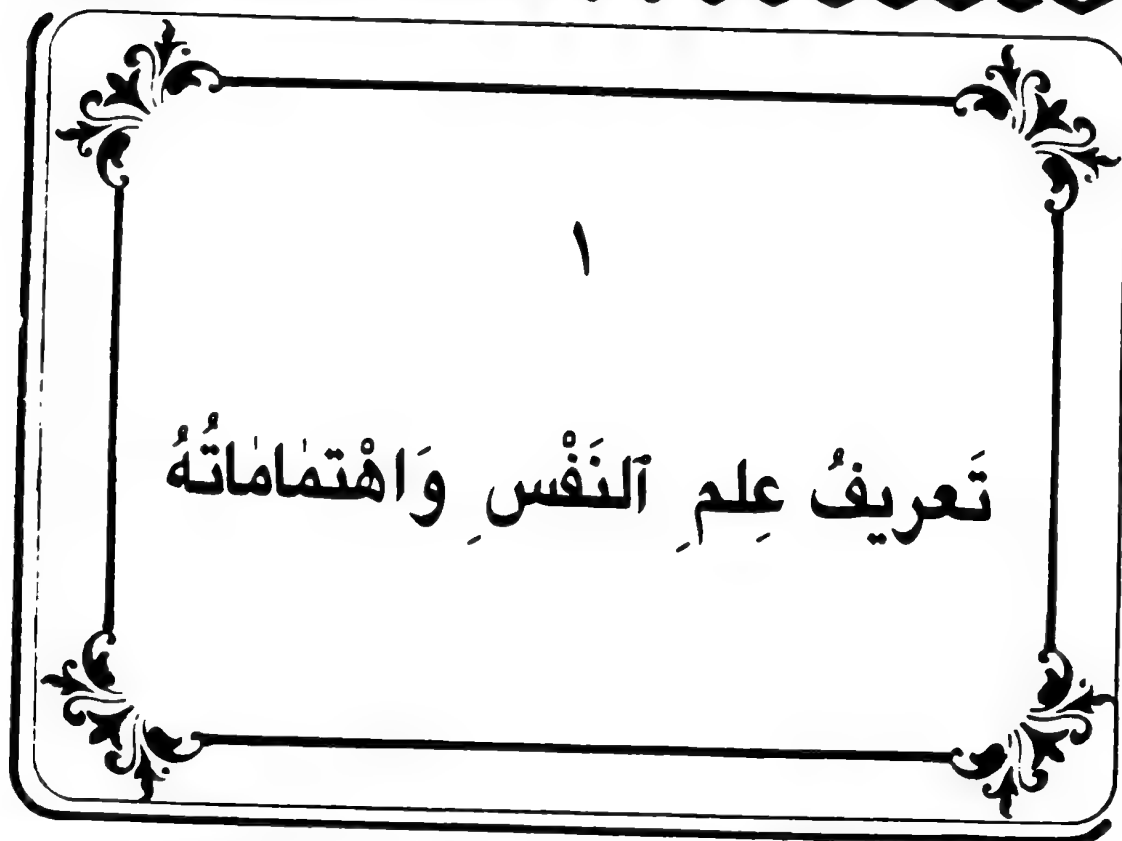 ١
تَعريفُ عِلمِ ٱلنَفْسِ وَاهْتمٰامٰاتُهُ